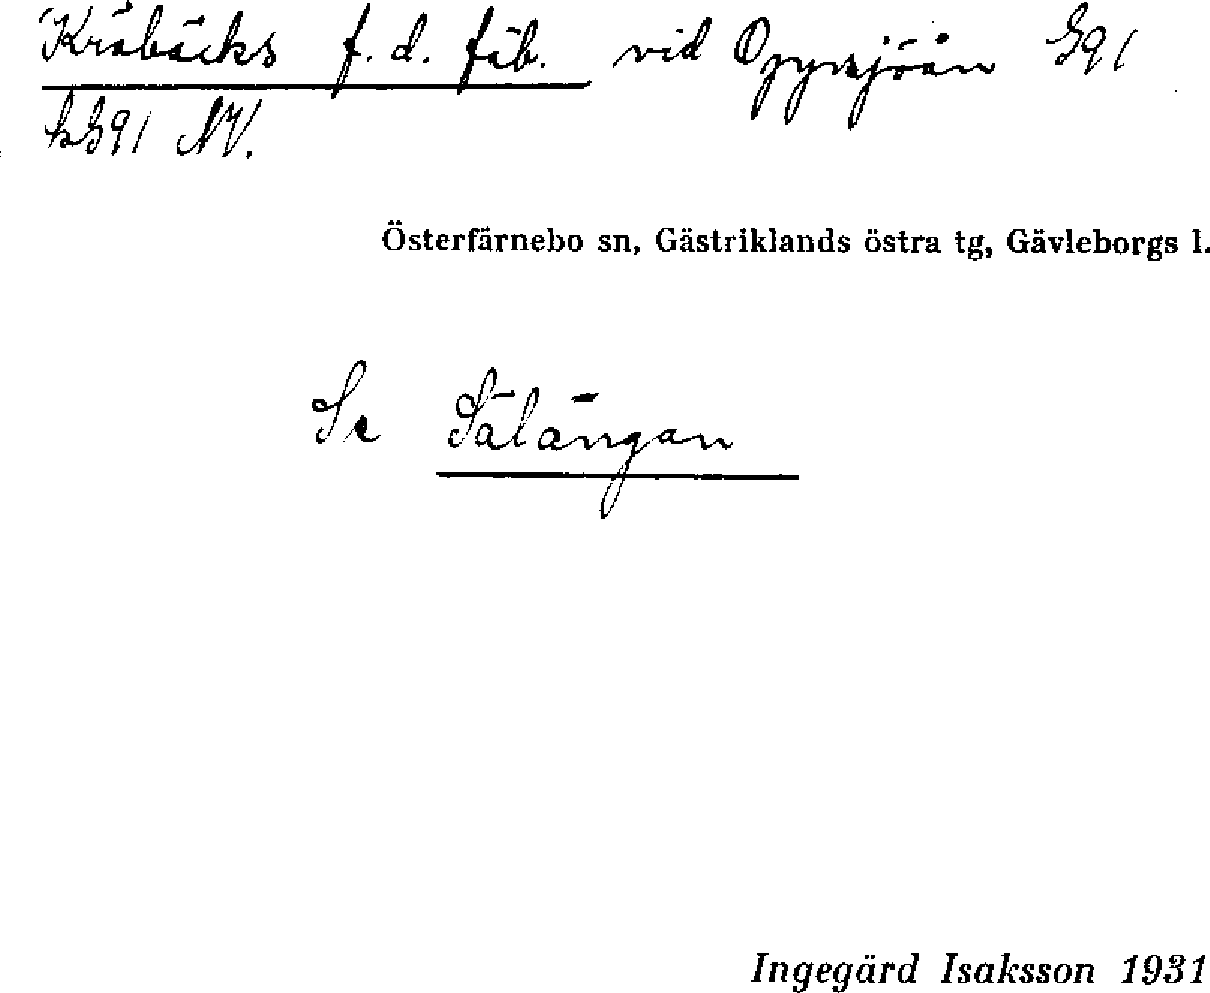 Kråbäcks f. d. fäb. vid Oppersjöån G91
kG91 NV.
Österfärnebo sn, Gästriklands östra tg, Gävleborgs l.
Se Sälängan
Ingegärd Isaksson 1931